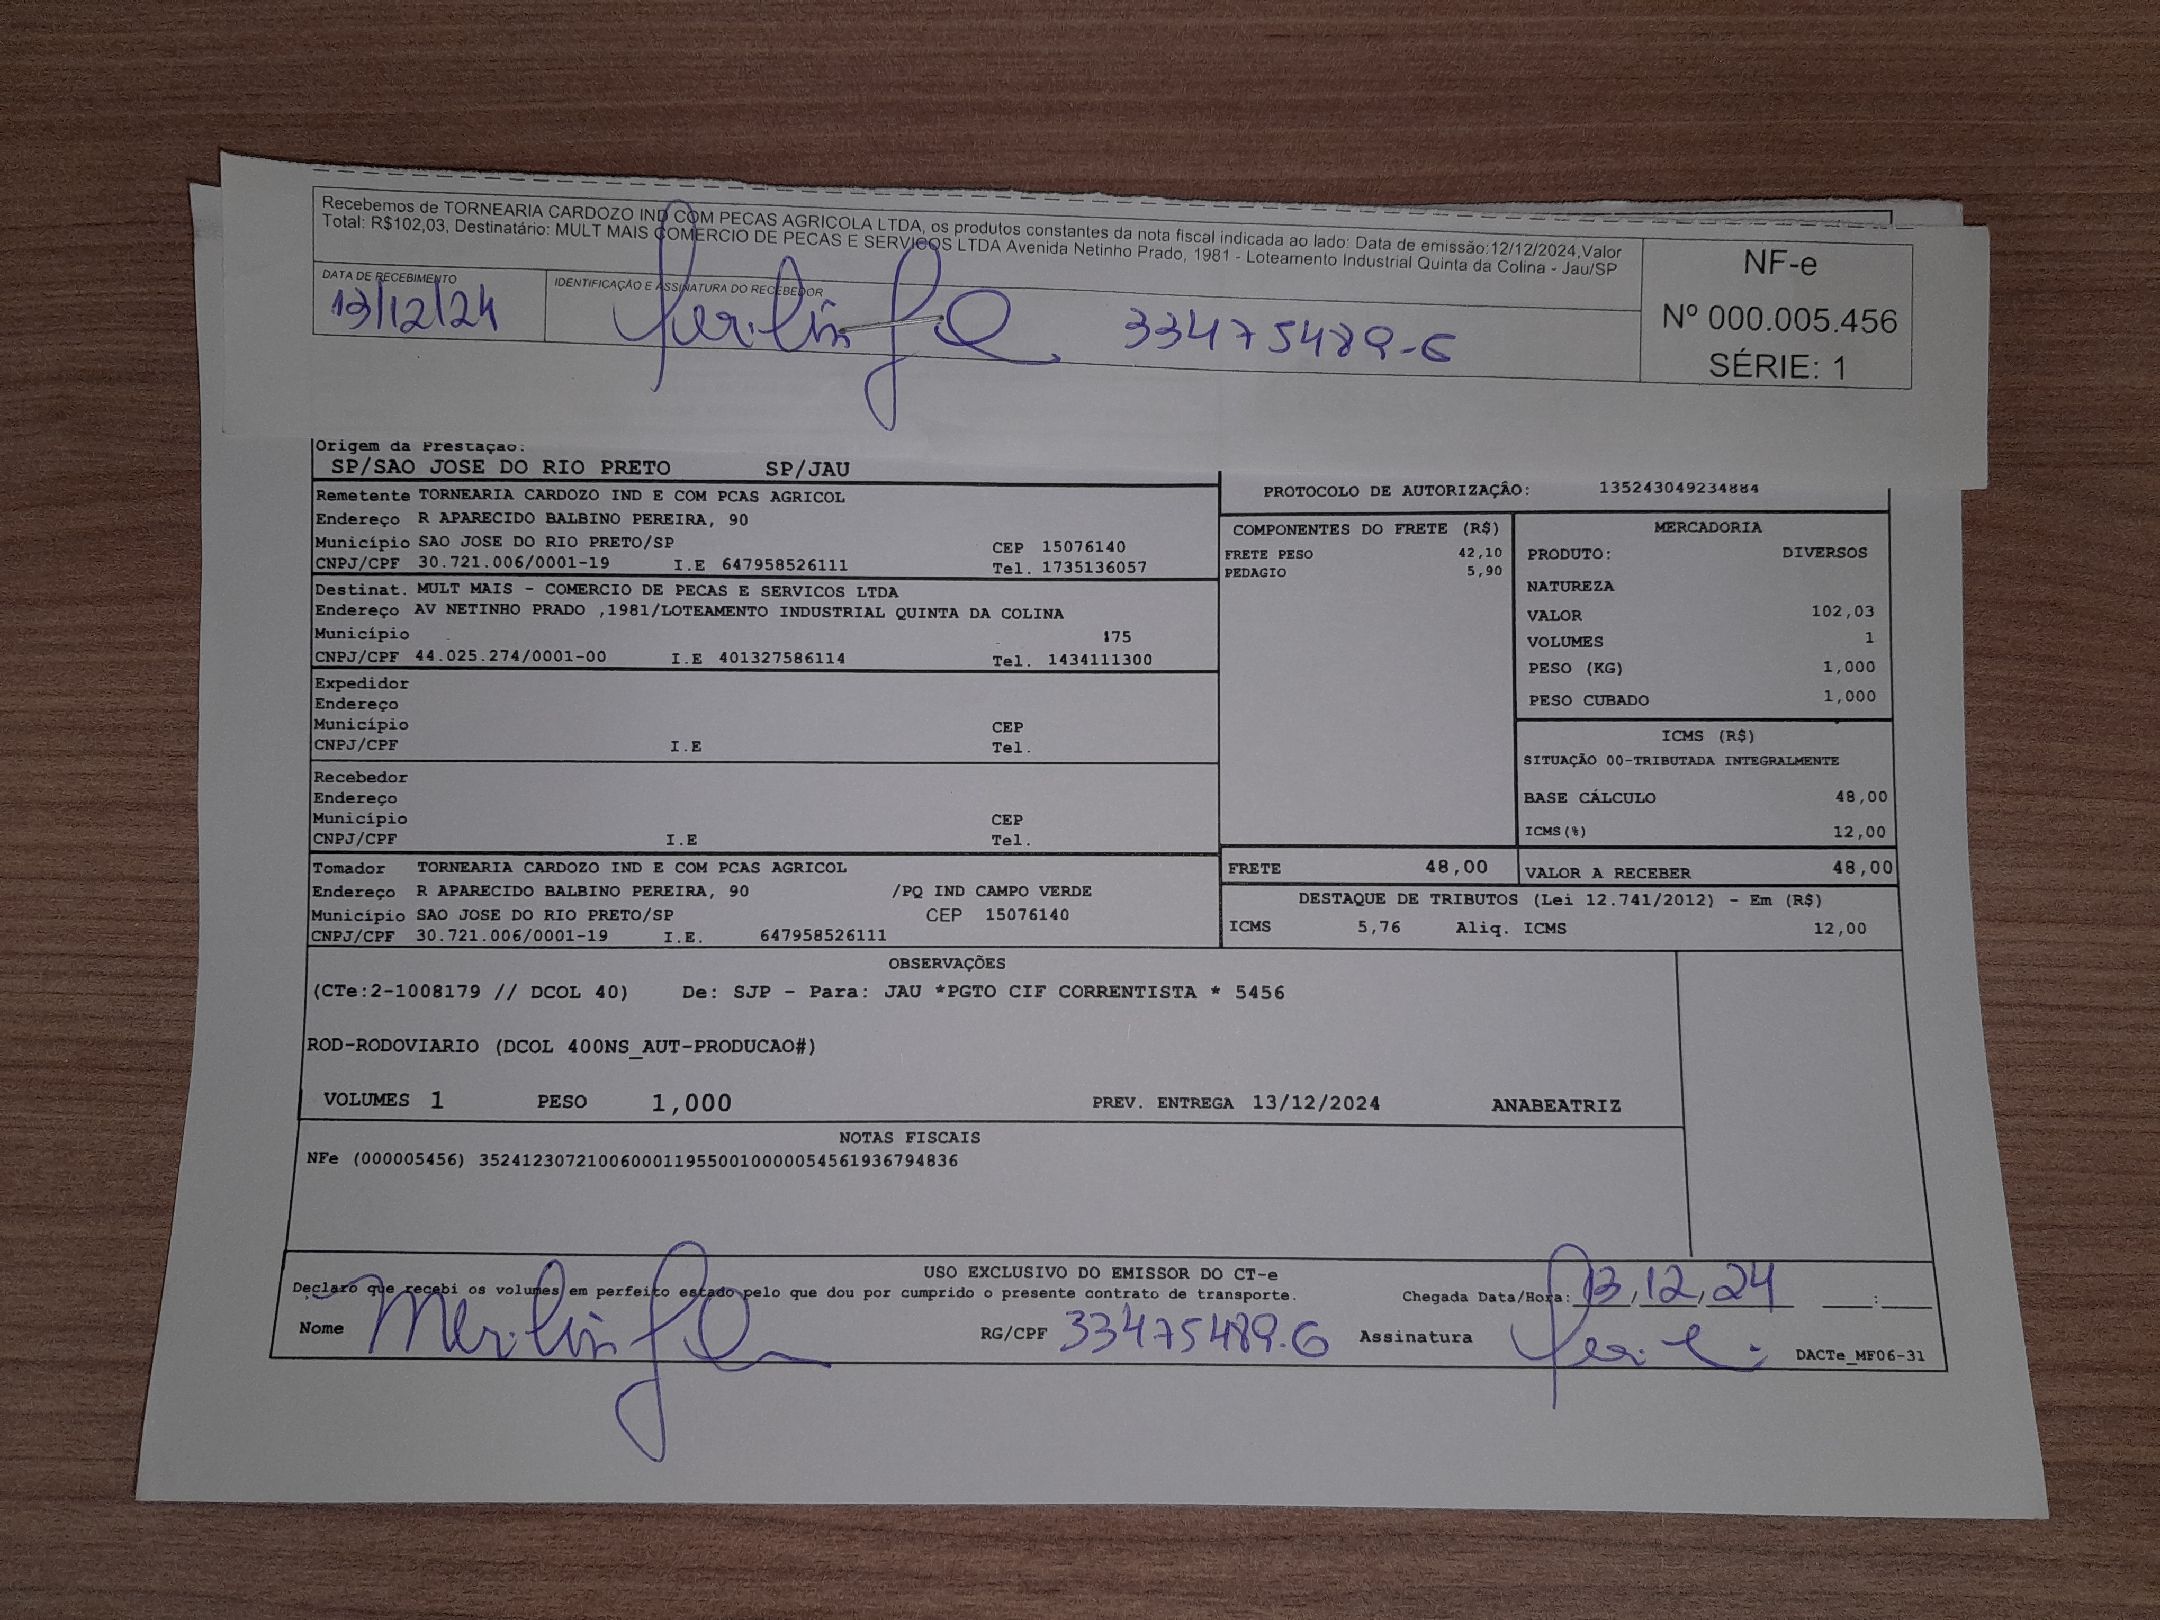 Recebemos de TORNEARIA CARDOZO IND COM PECAS AGRICOLA LTDA, os produtos constantes da nota fiscal indicada ao lado: Data de emissão:12/12/2024,Valor
Total: R$102,03, Destinatário: MULT MAIS COMERCIO DE PECAS E SERVICOS LTDA Avenida Netinho Prado, 1981 - Loteamento Industrial Quinta da Colina - Jau/SP
DATA DE RECEBIMENTO
13/12/24
IDENTIFICAÇÃO E ASSINATURA DO RECEBEDOR
33475489-6
NF-e
Nº 000.005.456
SÉRIE: 1
Origem da Prestação:
SP/SAO JOSE DO RIO PRETO SP/JAU
Remetente TORNEARIA CARDOZO IND E COM PCAS AGRICOL
Endereço R APARECIDO BALBINO PEREIRA, 90
Município SAO JOSE DO RIO PRETO/SP CEP 15076140
CNPJ/CPF 30.721.006/0001-19 I.E 647958526111 Tel. 1735136057
Destinat. MULT MAIS - COMERCIO DE PECAS E SERVICOS LTDA
Endereço AV NETINHO PRADO ,1981/LOTEAMENTO INDUSTRIAL QUINTA DA COLINA
Município 175
CNPJ/CPF 44.025.274/0001-00 I.E 401327586114 Tel. 1434111300
Expedidor
Endereço
Município CEP
CNPJ/CPF I.E Tel.
Recebedor
Endereço
Município CEP
CNPJ/CPF I.E Tel.
Tomador TORNEARIA CARDOZO IND E COM PCAS AGRICOL
Endereço R APARECIDO BALBINO PEREIRA, 90 /PQ IND CAMPO VERDE
Município SAO JOSE DO RIO PRETO/SP CEP 15076140
CNPJ/CPF 30.721.006/0001-19 I.E. 647958526111
PROTOCOLO DE AUTORIZAÇÃO: 135243049234884
COMPONENTES DO FRETE (R$)
FRETE PESO 42,10
PEDAGIO 5,90
MERCADORIA
PRODUTO: DIVERSOS
NATUREZA
VALOR 102,03
VOLUMES 1
PESO (KG) 1,000
PESO CUBADO 1,000
ICMS (R$)
SITUAÇÃO 00-TRIBUTADA INTEGRALMENTE
BASE CÁLCULO 48,00
ICMS(%) 12,00
FRETE 48,00 VALOR A RECEBER 48,00
DESTAQUE DE TRIBUTOS (Lei 12.741/2012) - Em (R$)
ICMS 5,76 Aliq. ICMS 12,00
OBSERVAÇÕES
(CTe:2-1008179 // DCOL 40) De: SJP - Para: JAU *PGTO CIF CORRENTISTA * 5456
ROD-RODOVIARIO (DCOL 400NS_AUT-PRODUCAO#)
VOLUMES 1 PESO 1,000 PREV. ENTREGA 13/12/2024 ANABEATRIZ
NOTAS FISCAIS
NFe (000005456) 35241230721006000119550010000054561936794836
USO EXCLUSIVO DO EMISSOR DO CT-e
Declaro que recebi os volumes em perfeito estado pelo que dou por cumprido o presente contrato de transporte. Chegada Data/Hora: 13,12,24 :
Nome RG/CPF 33475489.6 Assinatura
DACTe_MF06-31